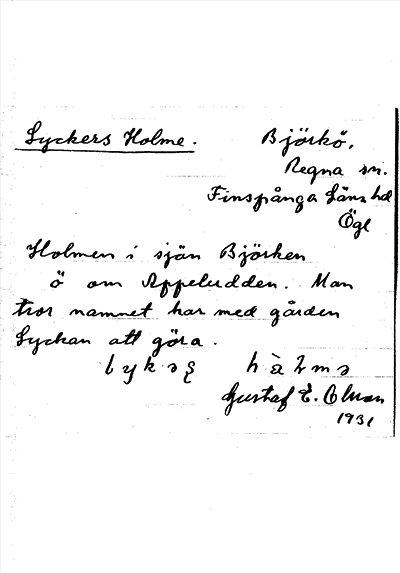 Lyckers Holme.
Björkö,
Regna sn.
Finspånga läns hd
Ögl
Holmen i sjön Björken
ö om Appeludden. Man
tror namnet har med gården
Lyckan att göra.
Gustaf E. Olsson
1931